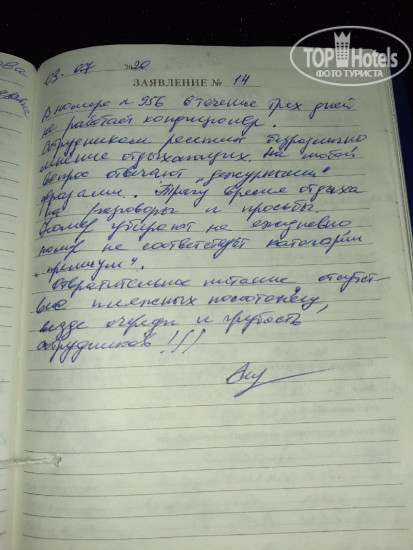 TOP Hotels
ФОТО ТУРИСТА
03. 07 2020
ЗАЯВЛЕНИЕ № 14
В номере № 956 в течение трех дней
не работает кондиционер.
Сотрудникам ресепшн безразлично
мнение отдыхающих, на любой
вопрос отвечают „дежурными"
фразами. Трачу время отдыха
на разговоры и просьбы.
Номер убирают не ежедневно,
номер не соответствует категории
„премиум".
Отвратительное питание, отсутст-
вие пляжных полотенец,
везде очереди и грубость
сотрудников!!!